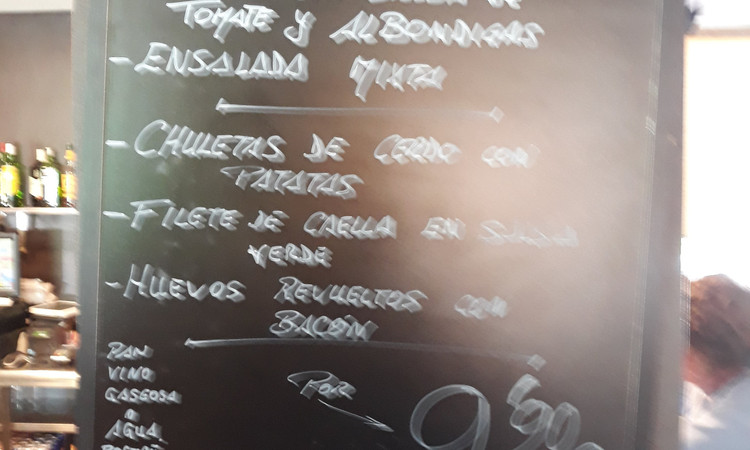 TOMATE Y ALBONDIGAS
- ENSALADA MIXTA
- CHULETAS DE CERDO CON
PATATAS
- FILETE DE CAELLA EN SALSA
VERDE
- HUEVOS REVUELTOS CON
BACON
PAN
VINO
GASEOSA
O
AGUA
POR